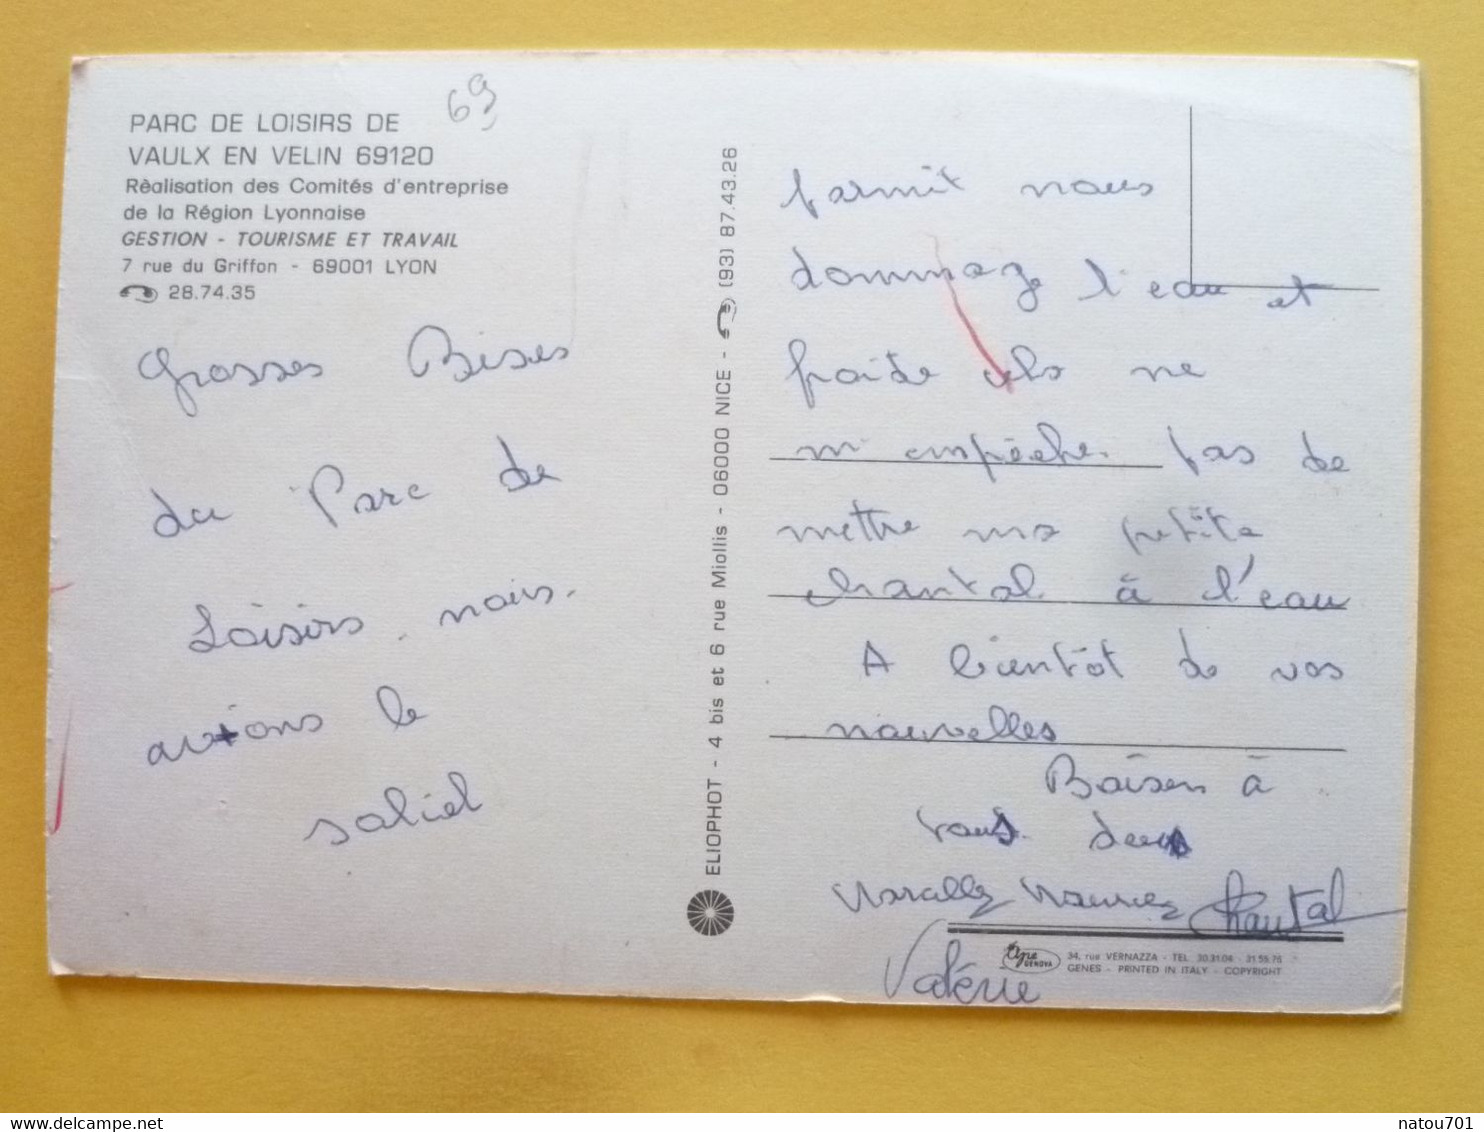 69
PARC DE LOISIRS DE
VAULX EN VELIN 69120
Rèalisation des Comités d'entreprise
de la Région Lyonnaise
GESTION - TOURISME ET TRAVAIL
7 rue du Griffon - 69001 LYON
28.74.35
Grosses Bises
du Parc de
Loisirs. nous.
avions le
soliel
ELIOPHOT - 4 bis et 6 rue Miollis - 06000 NICE - (93) 87.43.26
parmit nous
dommage l'eau et
froide ne
m'empêche pas de
mettre ma petite
chantal à l'eau
A bientôt de vos
nouvelles
Baisers à
tous deux
Chantal
Valérie
GENOVA
34, rue VERNAZZA - TEL. 30.31.04 - 31.59.76
GENES - PRINTED IN ITALY - COPYRIGHT
natou701